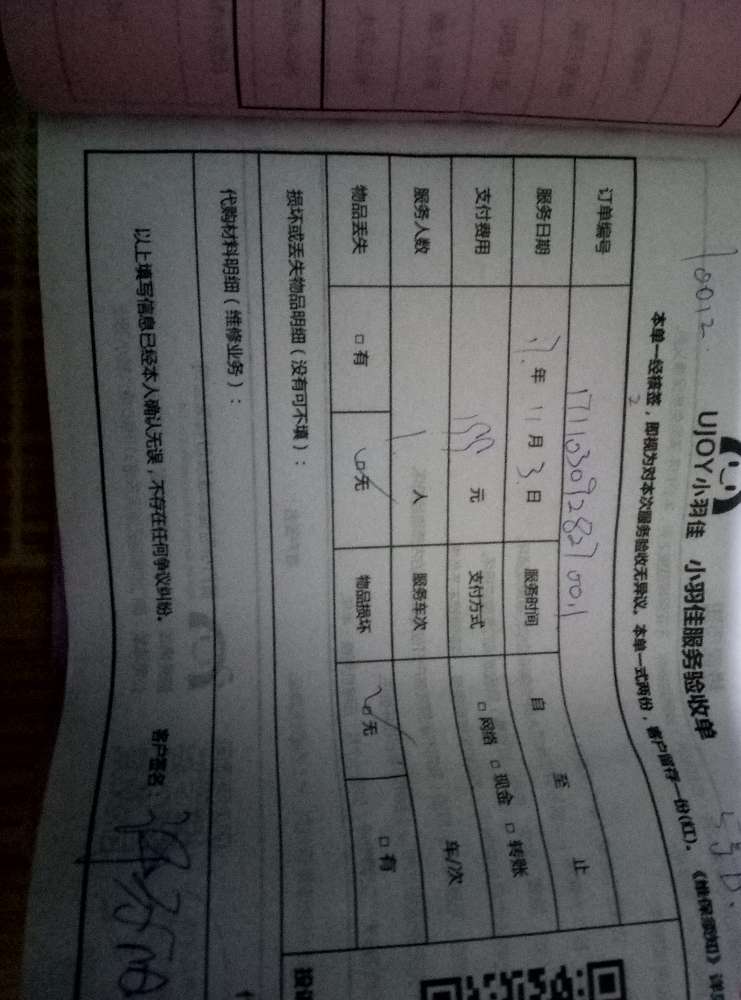 10012.
UJOY小羽佳 小羽佳服务验收单
本单一经核签，即视为对本次服务验收无异议。本单一式两份，客户留存一份(红)。《维保须知》详
订单编号 171103092827001
服务日期 17年 11月 3日 服务时间 自 至 止
支付费用 元 支付方式 □网络 □现金 □转账
服务人数 1人 服务车次 车/次
物品丢失 □有 □无 物品损坏 □无 □有
损坏或丢失物品明细（没有可不填）：
代购材料明细（维修业务）：
以上填写信息已经本人确认无误，不存在任何争议纠纷。 客户签名：